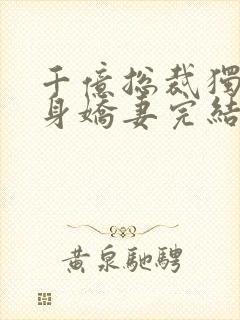 千億拹裁獨
身嬌妻完結
黃泉馳騁